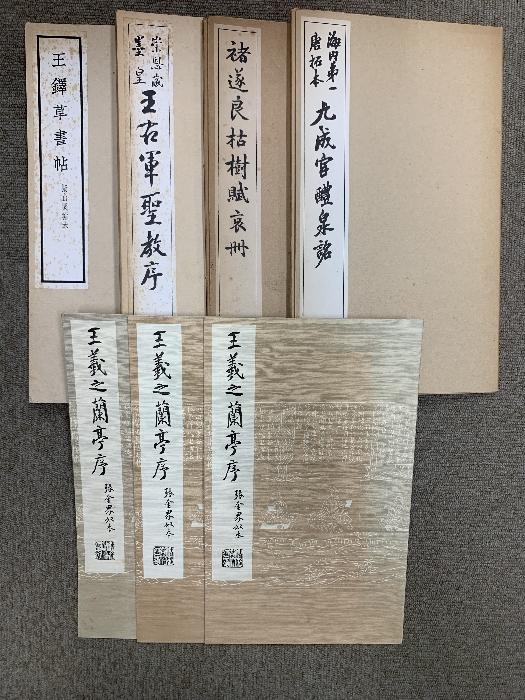 海内第一
唐拓本
九成宮醴泉銘
褚遂良枯樹賦哀冊
崇恩蔵
墨皇
王右軍聖教序
王鐸草書帖
王羲之蘭亭序
張金界奴本
王羲之蘭亭序
張金界奴本
王羲之蘭亭序
張金界奴本